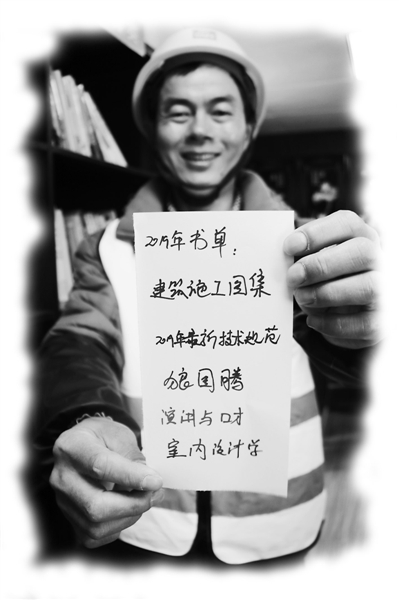 2019年书单:
建筑施工图集
2019年最新技术规范
狼图腾
演讲与口才
室内设计学